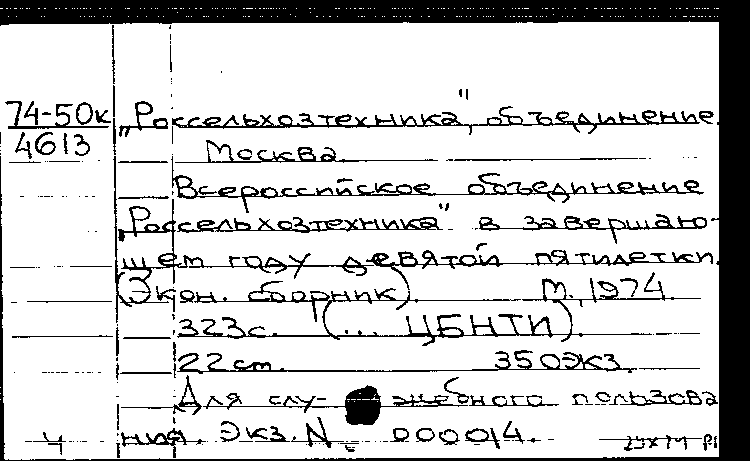 74-50к "Россельхозтехника", объединение.
4613 Москва.
Всероссийское объединение
"Россельхозтехника" в завершаю-
щем году девятой пятилетки.
(Экон. сборник). М., 1974.
323с. (... ЦБНТИ).
22 см. 350экз.
Для слу- жебного пользова
4 ния. Экз. N 000014.